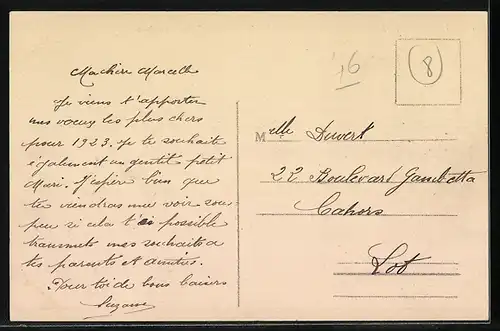 Ma chère Marcelle
Je viens t'apporter
mes voeux les plus chers
pour 1923. Je te souhaite
également un gentil petit
Mari. J'espère bien que
tu viendras me voir sous
peu si cela t'es possible
transmets mes souhaits a
tes parents et amities.
Pour toi de bons baisers
Suzanne
16
8
Melle Duverk
22 Boulevard Gambetta
Cahors
Lot